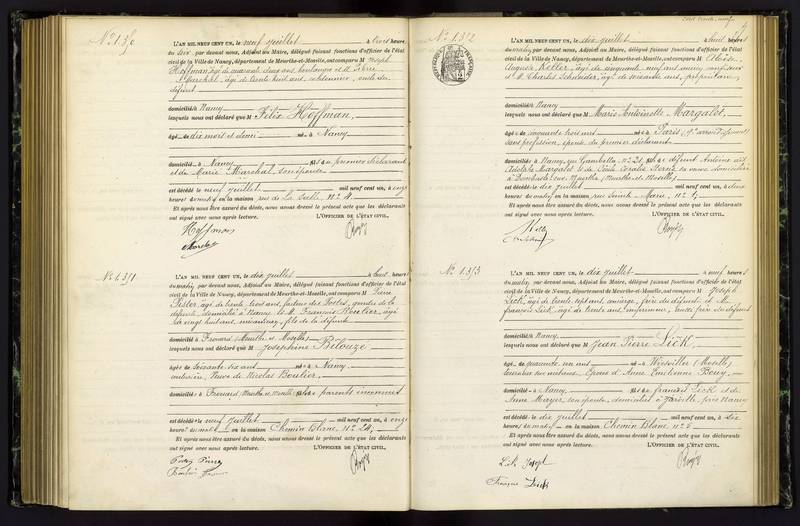 N° 1.3
L'AN MIL NEUF CENT UN, le neuf juillet à trois heures
du soir, par devant nous, Adjoint au Maire, délégué faisant fonctions d'officier de l'état
civil de la Ville de Nancy, département de Meurthe-et-Moselle, ont comparu M Joseph
Hoffman, âgé de quarante deux ans, boulanger et M. Pierre
Marchal, âgé de trente huit ans, cordonnier, oncle du
défunt
domicilié à Nancy
lesquels nous ont déclaré que M Félix Hoffman,
âgé de dix mois et demi né à Nancy
domicilié à Nancy, fils du premier déclarant
et de Marie Marchal, son épouse
est décédé le neuf juillet mil neuf cent un, à onze
heures du matin en la maison rue de La Salle, n° 4.
Et après nous être assuré du décès, nous avons dressé le présent acte que les déclarants
ont signé avec nous après lecture. L'OFFICIER DE L'ÉTAT CIVIL,
Hoffman
Marchal
N° 1.371
L'AN MIL NEUF CENT UN, le dix juillet à huit heures
du matin, par devant nous, Adjoint au Maire, délégué faisant fonctions d'officier de l'état
civil de la Ville de Nancy, département de Meurthe-et-Moselle, ont comparu M Pierre
âgé de trente trois ans, facteur des Postes, gendre de la
défunte, domicilié à Nancy, et M. François Roulier, âgé
de vingt huit ans, mécanicien, fils de la défunte
domicilié à Frouard (Meurthe et Moselle)
lesquels nous ont déclaré que M Joséphine Belouze
âgée de soixante six ans née à Nancy
Veuve de Nicolas Roulier,
domiciliée à Frouard, Meurthe et Moselle, fille de parents inconnus
est décédée le neuf juillet mil neuf cent un, à onze
heures du matin en la maison Chemin Blanc, n° 24.
Et après nous être assuré du décès, nous avons dressé le présent acte que les déclarants
ont signé avec nous après lecture. L'OFFICIER DE L'ÉTAT CIVIL,
N° 1.372
L'AN MIL NEUF CENT UN, le dix juillet à huit heures
du matin, par devant nous, Adjoint au Maire, délégué faisant fonctions d'officier de l'état
civil de la Ville de Nancy, département de Meurthe-et-Moselle, ont comparu M Aloïse
Auguste Keller, âgé de cinquante neuf ans,
et M. Charles Schneider, âgé de soixante ans, propriétaire,
domicilié à Nancy
lesquels nous ont déclaré que M Marie Antoinette Margalet,
âgée de cinquante trois ans née à Paris
sans profession, épouse du premier déclarant
domiciliée à Nancy, rue Gambetta n° 21, fille de défunt Antoine dit
Adolphe Margalet et de Coralie sa veuve domiciliée
à Dombasle, rue Mathieu (Meurthe et Moselle)
est décédée le dix juillet mil neuf cent un, à deux
heures du matin en la maison rue Sainte-Marie, n° 1,
Et après nous être assuré du décès, nous avons dressé le présent acte que les déclarants
ont signé avec nous après lecture. L'OFFICIER DE L'ÉTAT CIVIL,
N° 1.373
L'AN MIL NEUF CENT UN, le dix juillet à neuf heures
du matin, par devant nous, Adjoint au Maire, délégué faisant fonctions d'officier de l'état
civil de la Ville de Nancy, département de Meurthe-et-Moselle, ont comparu M Joseph
Lick, âgé de trente sept ans, frère du défunt et M.
François Lick, âgé de trente ans, infirmier, frère du défunt
domicilié à Nancy
lesquels nous ont déclaré que M Jean Pierre Lick,
âgé de quarante un ans né à (Moselle)
tourneur sur métaux, Époux d'Anne Émilienne
domicilié à Nancy, fils de François Lick et de
Anne Mayer, son épouse, domiciliés à Jarville, près Nancy
est décédé le dix juillet mil neuf cent un, à six
heures du matin en la maison Chemin Blanc n° 6
Et après nous être assuré du décès, nous avons dressé le présent acte que les déclarants
ont signé avec nous après lecture. L'OFFICIER DE L'ÉTAT CIVIL,
Lick Joseph
François Lick